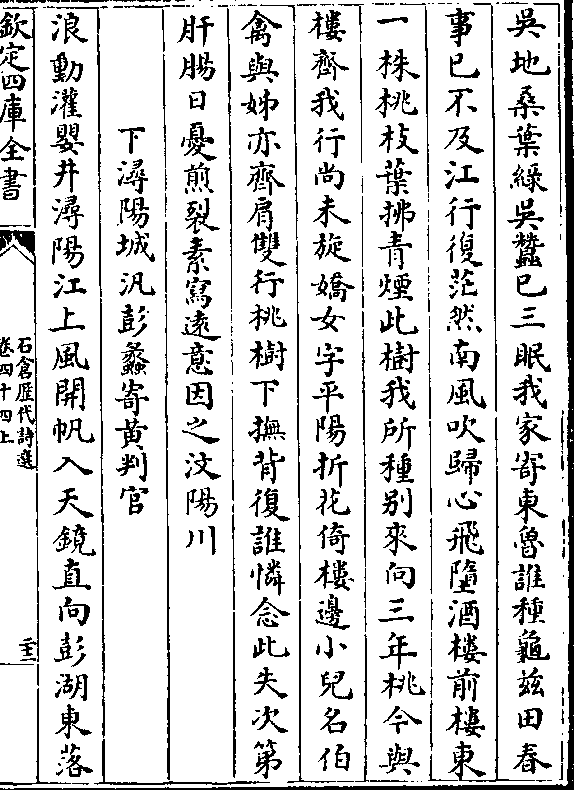 吳地桑葉綠吳蠶已三眠我家寄東魯誰種龜兹田春
事已不及江行復茫然南風吹歸心飛墮酒樓前樓東
一株桃枝葉拂青煙此樹我所種别來向三年桃今與
樓齊我行尚未旋嬌女字平陽折花倚樓邊小兒名伯
禽與姊亦齊肩雙行桃樹下撫背復誰憐念此失次第
肝腸日憂煎裂素寫遠意因之汶陽川
下潯陽城汎彭蠡寄黃判官
浪動灌嬰井潯陽江上風開帆入天鏡直向彭湖東落
欽定四庫全書
石倉歴代詩選
卷四十四上
二十二